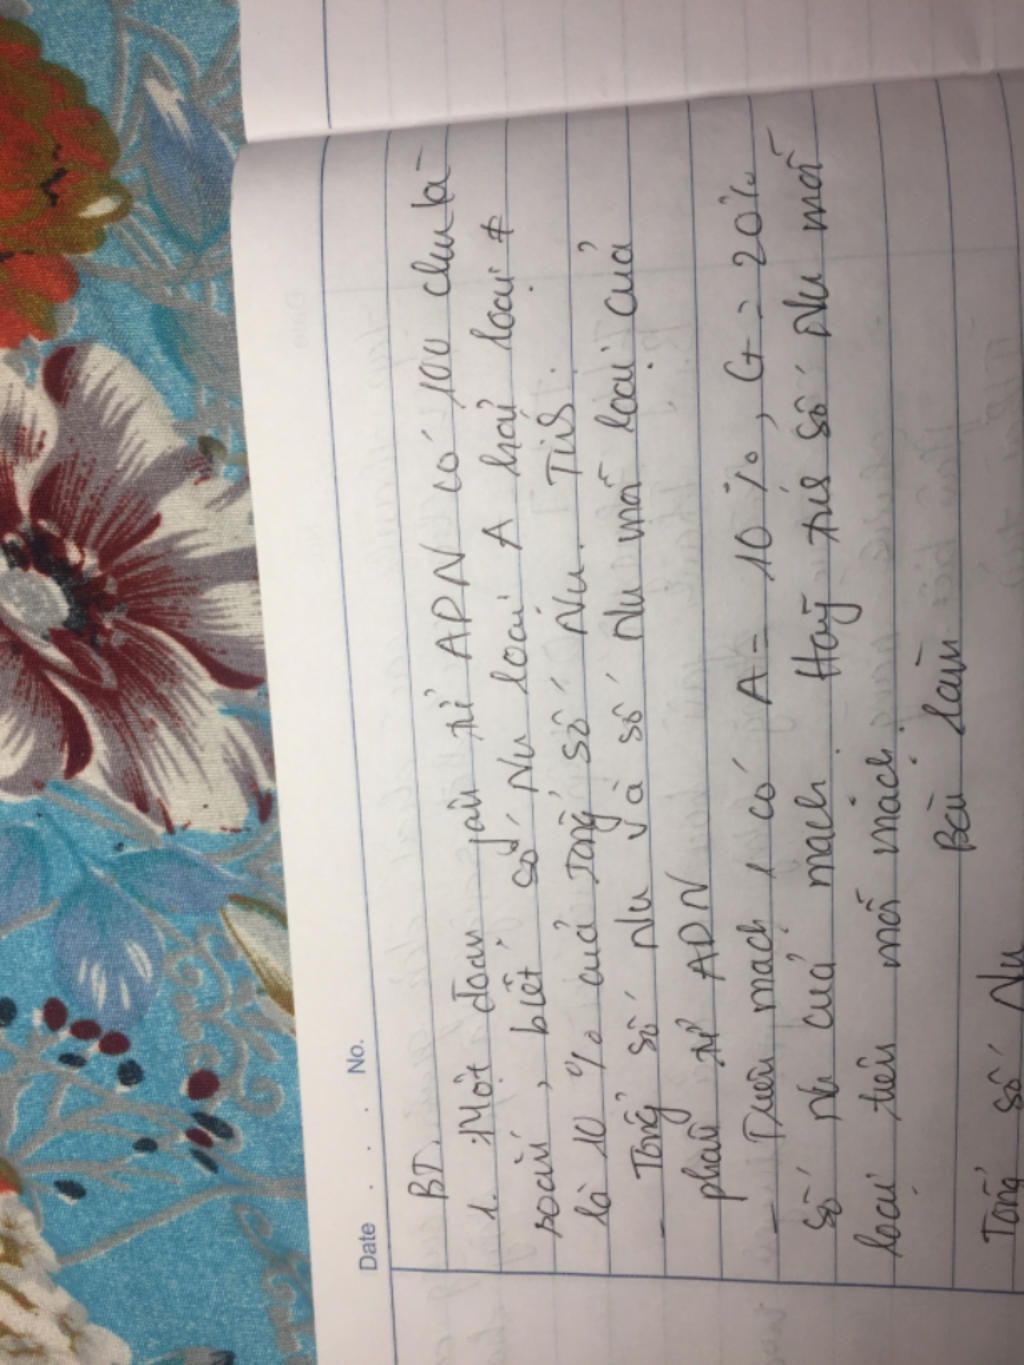 Date . . . No.
BT.
1. Một đoạn phân tử ADN có 100 chu kì
xoắn, biết số Nu loại A hiệu loại ≠
là 10% của tổng số Nu. Tính.
- Tổng số Nu và số Nu mỗi loại của
phân tử ADN
- Trên mạch 1 có A = 10%, G = 20%
số Nu của mạch. Hãy tính số Nu mỗi
loại trên mỗi mạch.
Bài làm
Tổng số Nu